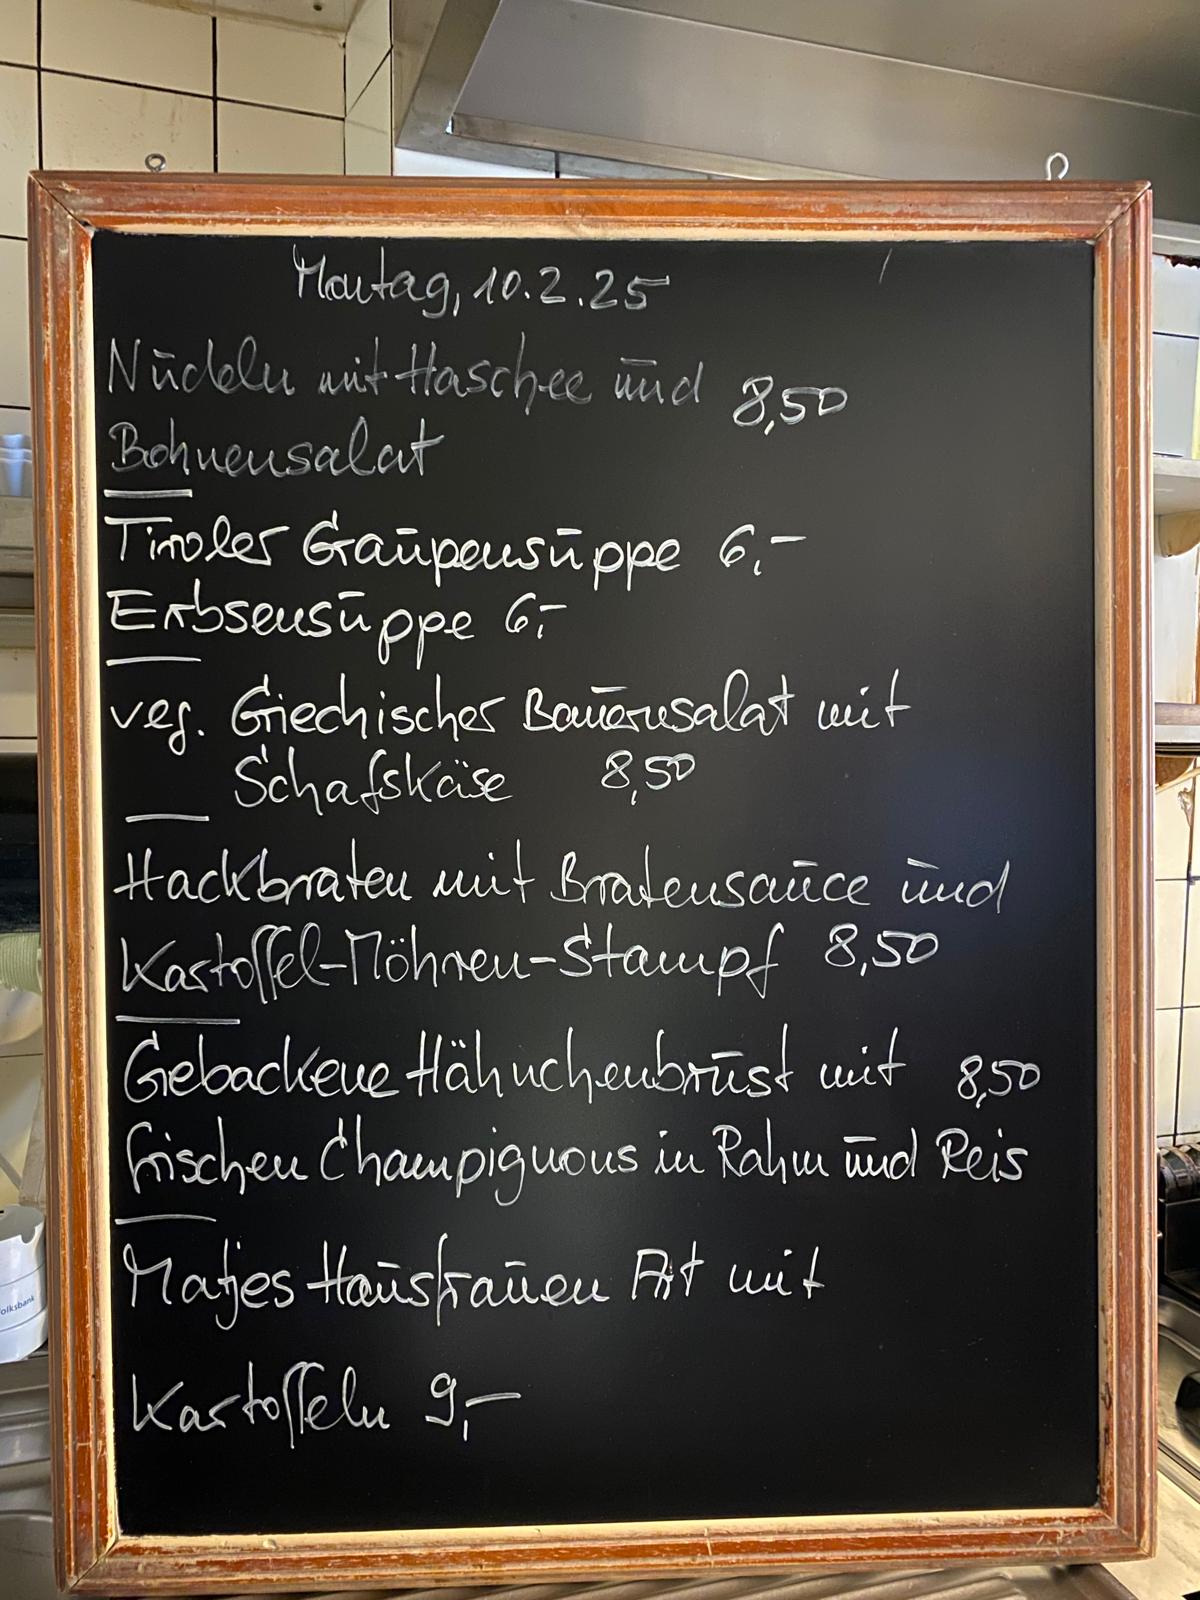 Montag, 10.2.25
Nudeln mit Haschee und 8,50
Bohnensalat
Tiroler Graupensuppe 6,-
Erbsensuppe 6,-
veg. Griechischer Bauernsalat mit
Schafskäse 8,50
Hackbraten mit Bratensauce und
Kartoffel-Möhren-Stampf 8,50
Gebackene Hähnchenbrust mit 8,50
frischen Champignons in Rahm und Reis
Matjes Hausfrauen Art mit
Kartoffeln 9,-
Volksbank